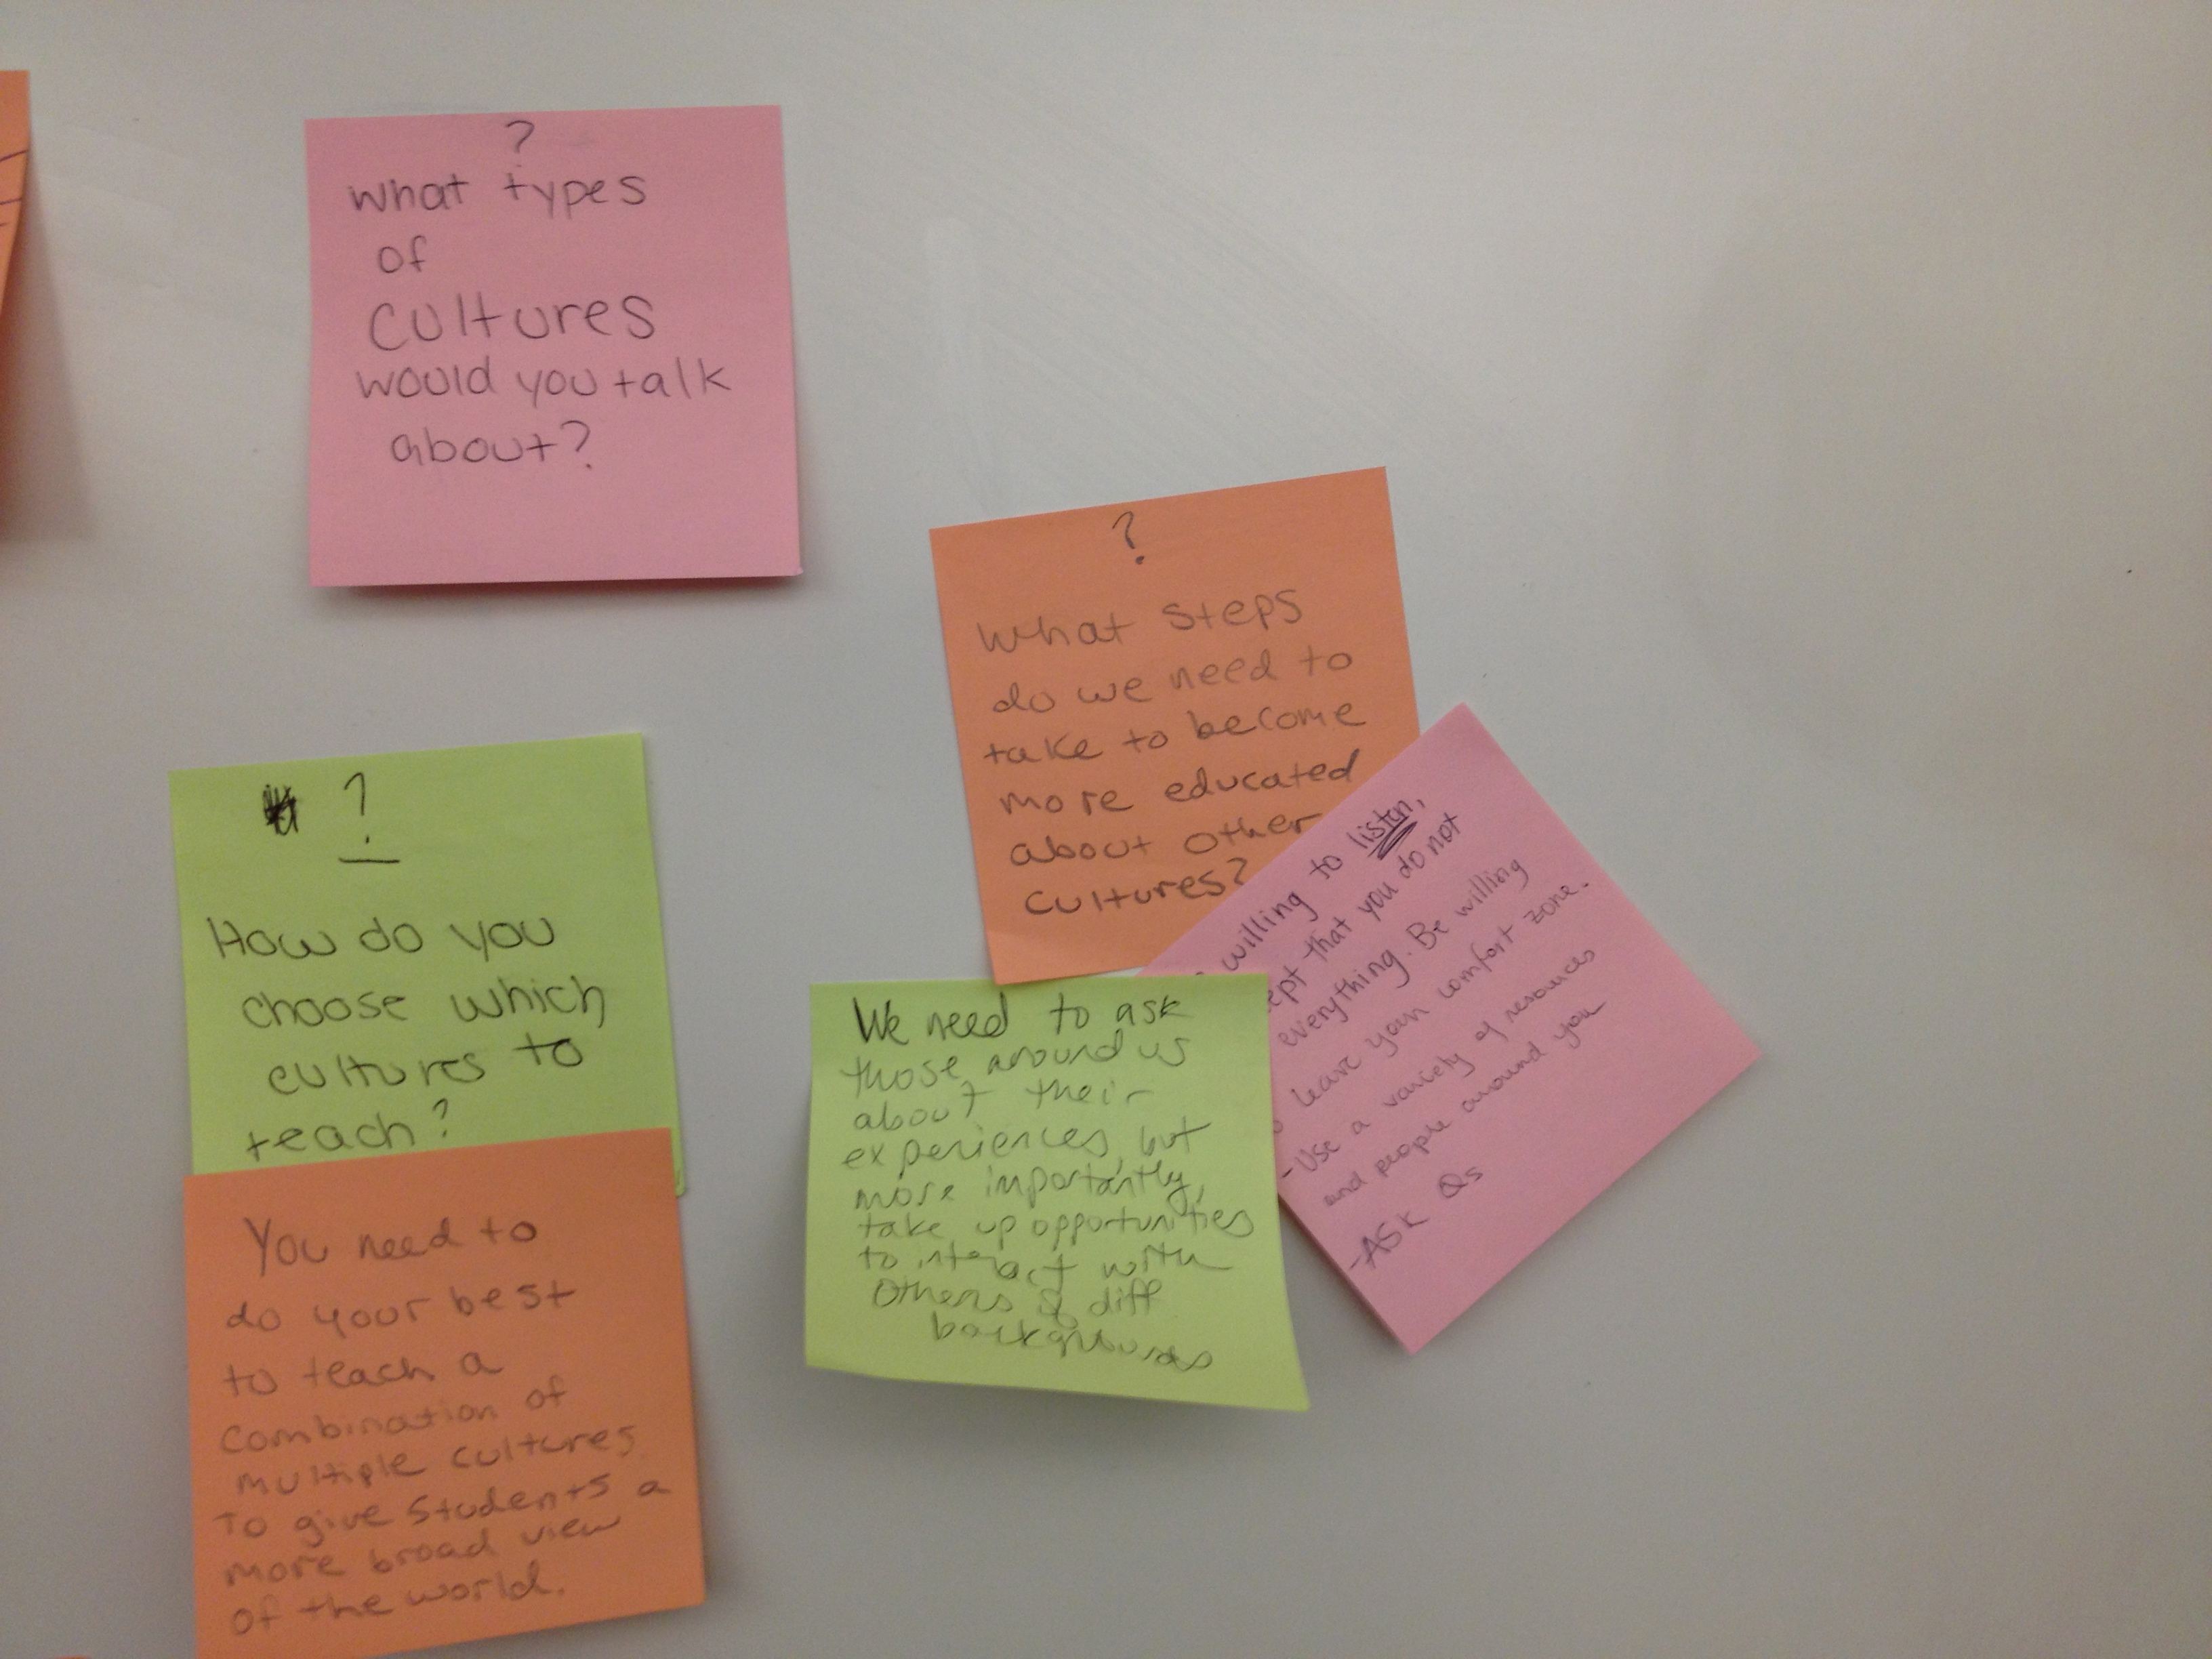 ?
what types
of
cultures
would you talk
about?
?
what steps
do we need to
take to become
more educated
about other
cultures?
willing to listen,
that you do not
everything. Be willing
leave your comfort zone.
-Use a variety of resources
and people around you
-ASK Qs
?
How do you
choose which
cultures to
teach?
You need to
do your best
to teach a
combination of
multiple cultures
To give students a
more broad view
of the world.
We need to ask
those around us
about their
experiences, but
more importantly,
take up opportunities
to interact with
others of diff
backgrounds